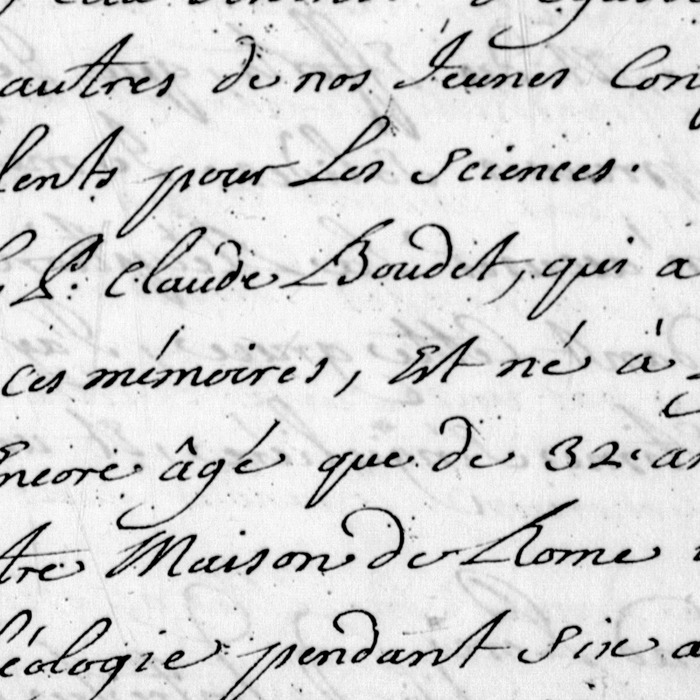 autres de nos Jeunes Con
lents pour Les Sciences.
P. Claude Boudet, qui a
ces mémoires, Est né à
Encore âgé que de 32. an
tre Maison de Rome
éologie pendant Six a